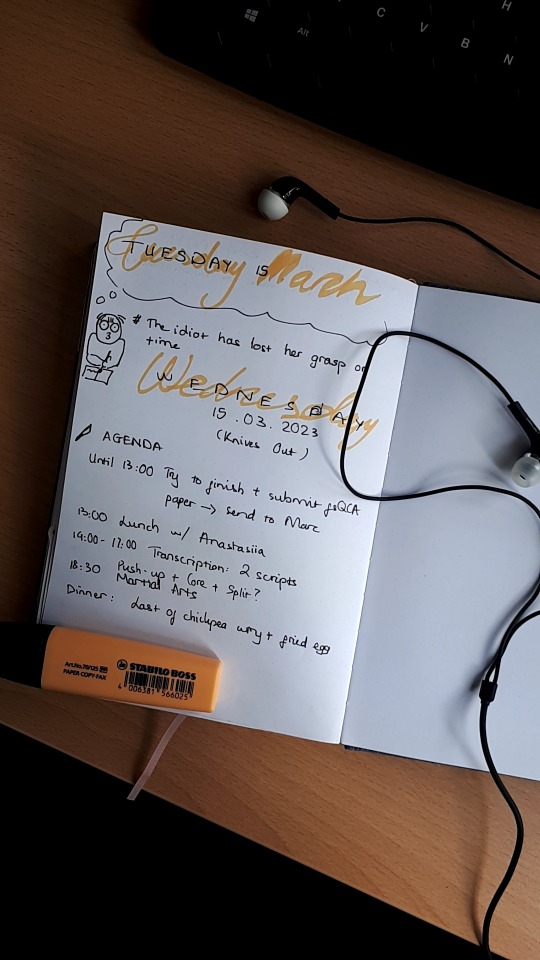 H
C
V
B
N
Alt
TUESDAY 15
Tuesday March
# The idiot has lost her grasp on
time
Wednesday
WEDNESDAY
15.03.2023
(Knives Out)
AGENDA
Until 13:00 Try to finish + submit fsQCA
paper → send to Marc
13:00 Lunch w/ Anastasiia
14:00 - 17:00 Transcription: 2 scripts
18:30 Push-up + Core + Split?
Martial Arts
Dinner: Last of chickpea curry + fried egg
Art.No.70/125
PAPER COPY FAX
STABILO BOSS
4 006381 566025